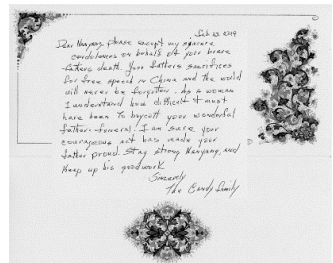 Feb 23 2019
Dear Nanyang, please except my sincere
condolences on behalf of your brave
fathers death. Your fathers sacrifices
for free speech in China and the world
will never be forgotten. As a woman
I understand how difficult it must
have been to boycott your wonderful
father-funeral. I am sure your
courageous act has made your
father proud. Stay strong Nanyang, and
Keep up his good work
Sincerely
The Family